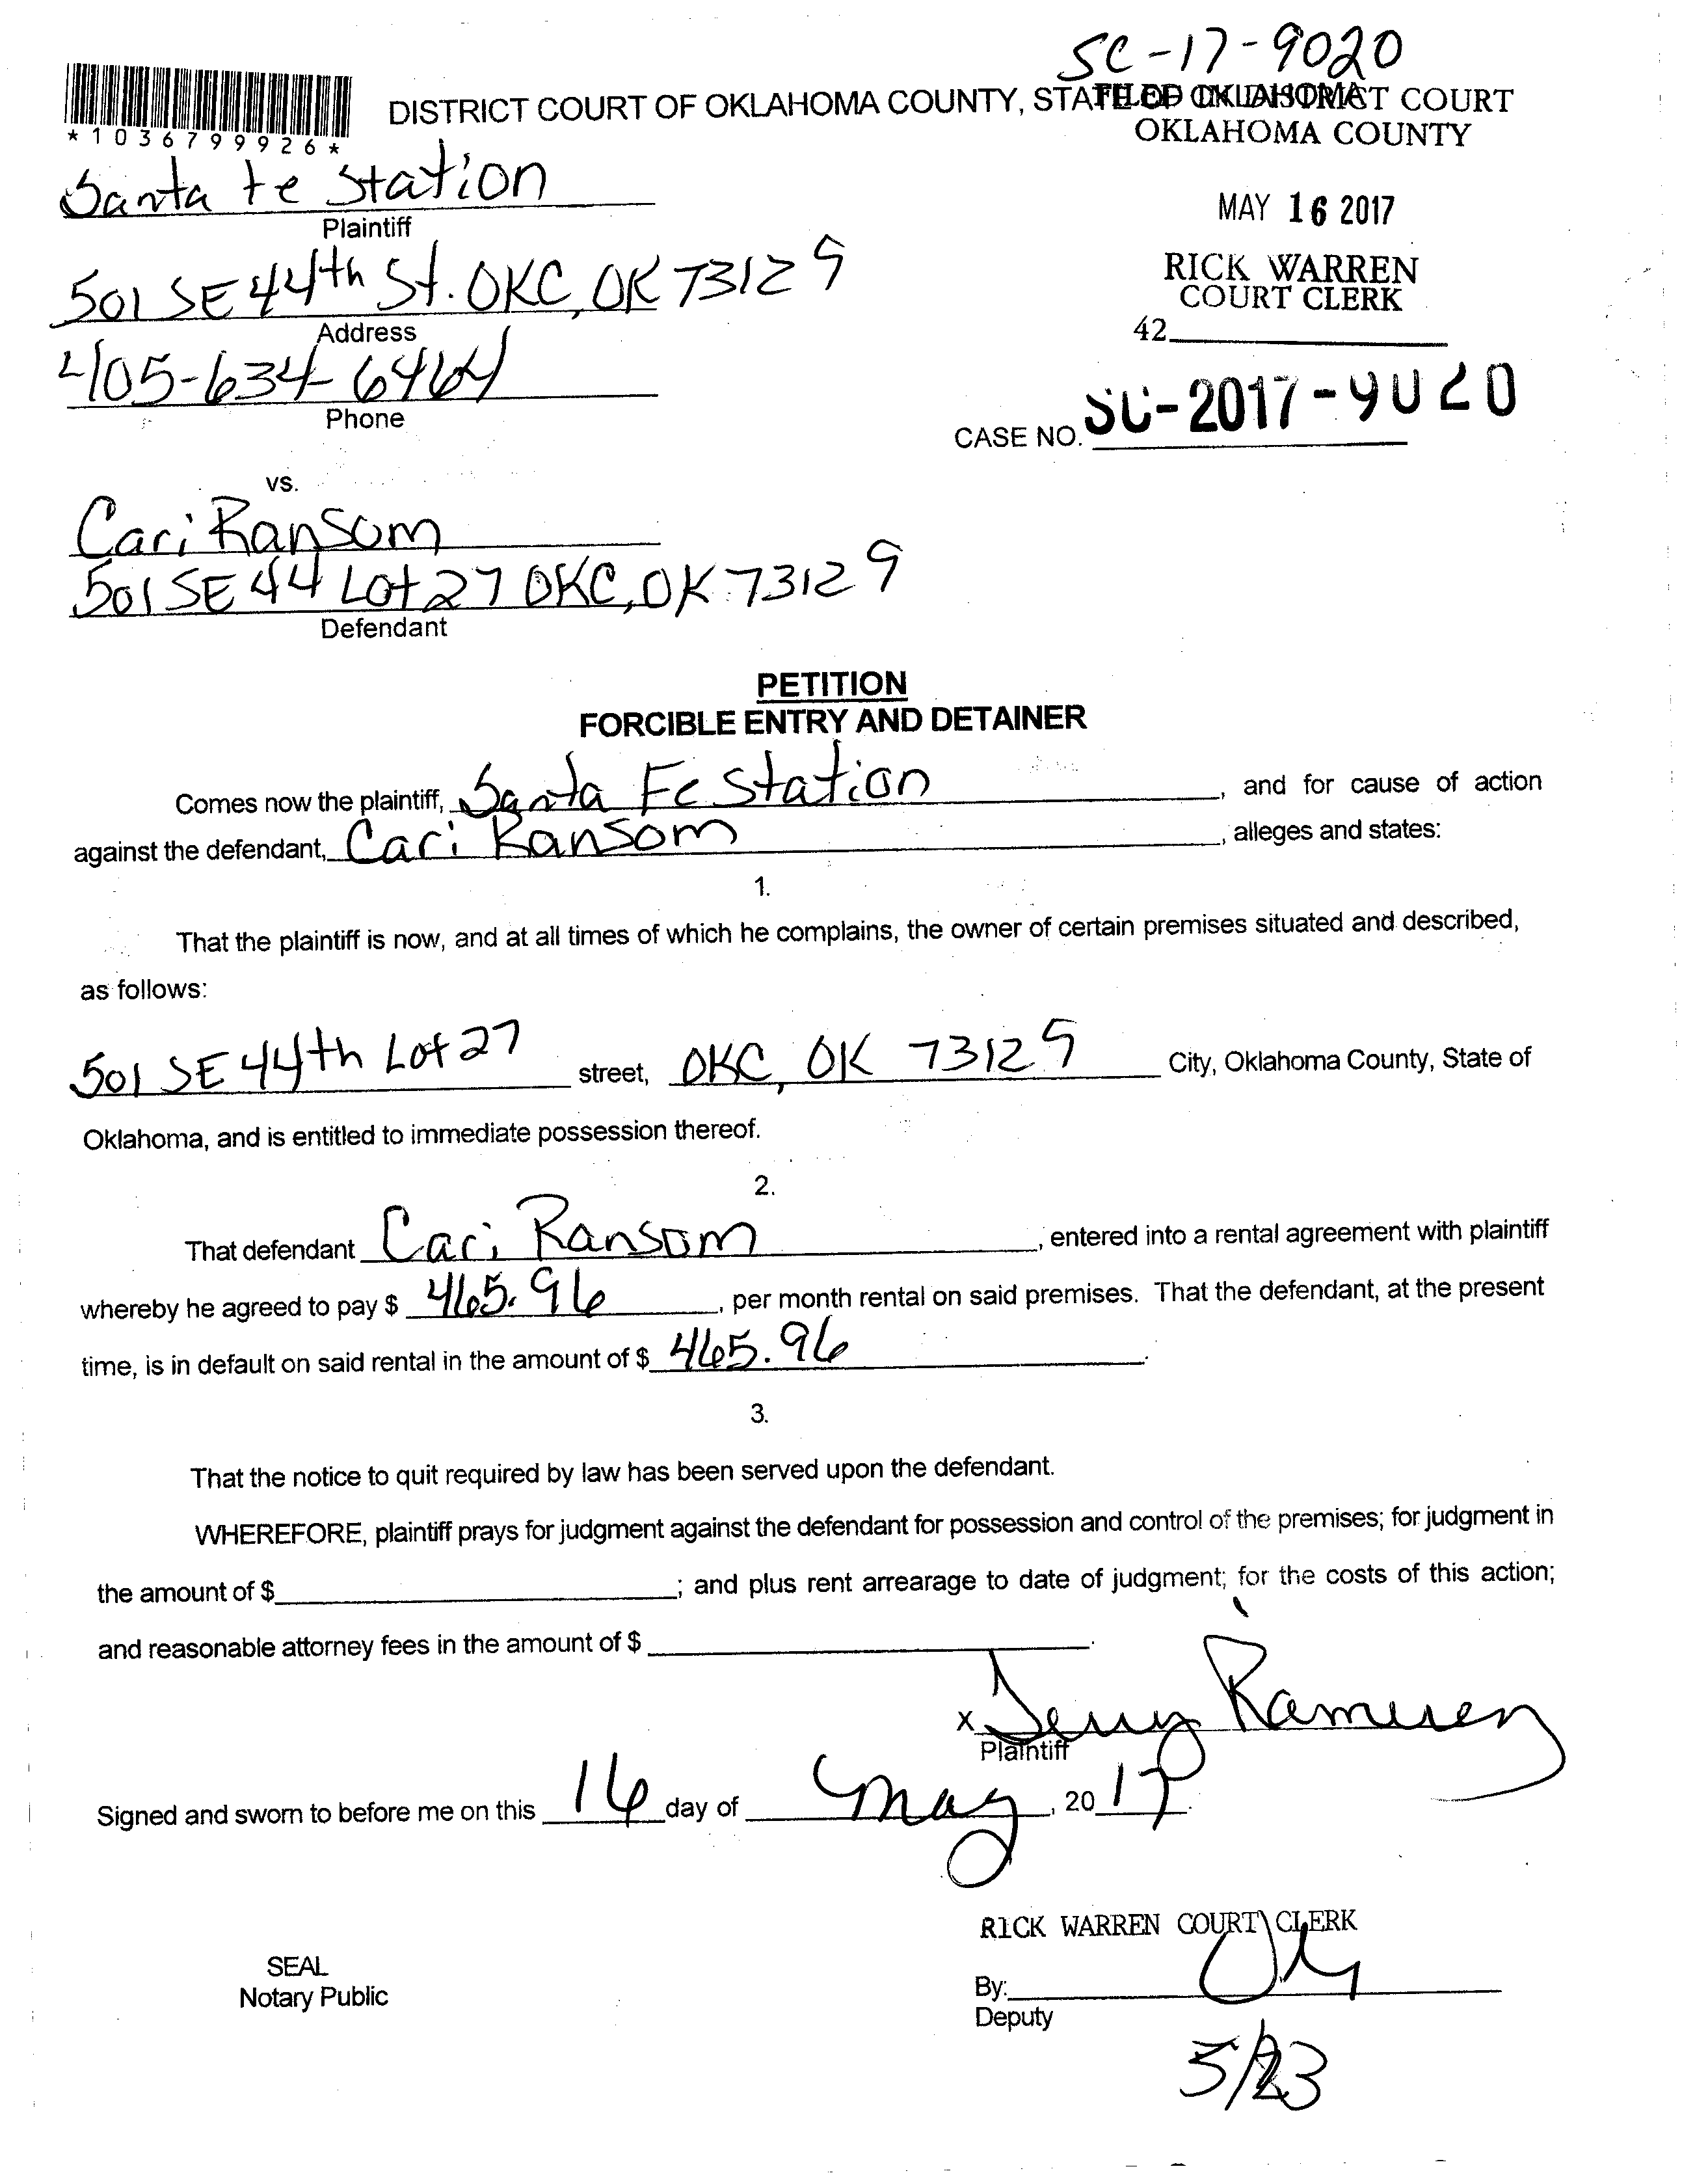 SC-17-9020
DISTRICT COURT OF OKLAHOMA COUNTY, STATE OF OKLAHOMA
FILED IN DISTRICT COURT
OKLAHOMA COUNTY
*1036799926*
Santa Fe Station
Plaintiff
MAY 16 2017
501 SE 44th St. OKC, OK 73129
Address
RICK WARREN
COURT CLERK
42
405-634-6464
Phone
CASE NO. SC-2017-9020
vs.
Cari Ransom
501 SE 44 Lot 27 OKC, OK 73129
Defendant
PETITION
FORCIBLE ENTRY AND DETAINER
Comes now the plaintiff, Santa Fe Station, and for cause of action
against the defendant, Cari Ransom, alleges and states:
1.
That the plaintiff is now, and at all times of which he complains, the owner of certain premises situated and described,
as follows:
501 SE 44th Lot 27 street, OKC, OK 73129 City, Oklahoma County, State of
Oklahoma, and is entitled to immediate possession thereof.
2.
That defendant Cari Ransom, entered into a rental agreement with plaintiff
whereby he agreed to pay $ 465.96, per month rental on said premises. That the defendant, at the present
time, is in default on said rental in the amount of $ 465.96.
3.
That the notice to quit required by law has been served upon the defendant.
WHEREFORE, plaintiff prays for judgment against the defendant for possession and control of the premises; for judgment in
the amount of $; and plus rent arrearage to date of judgment; for the costs of this action;
and reasonable attorney fees in the amount of $.
x Jerry Ramirez
Plaintiff
Signed and sworn to before me on this 16 day of May, 2017.
RICK WARREN COURT CLERK
SEAL
Notary Public
By:
Deputy
5/23